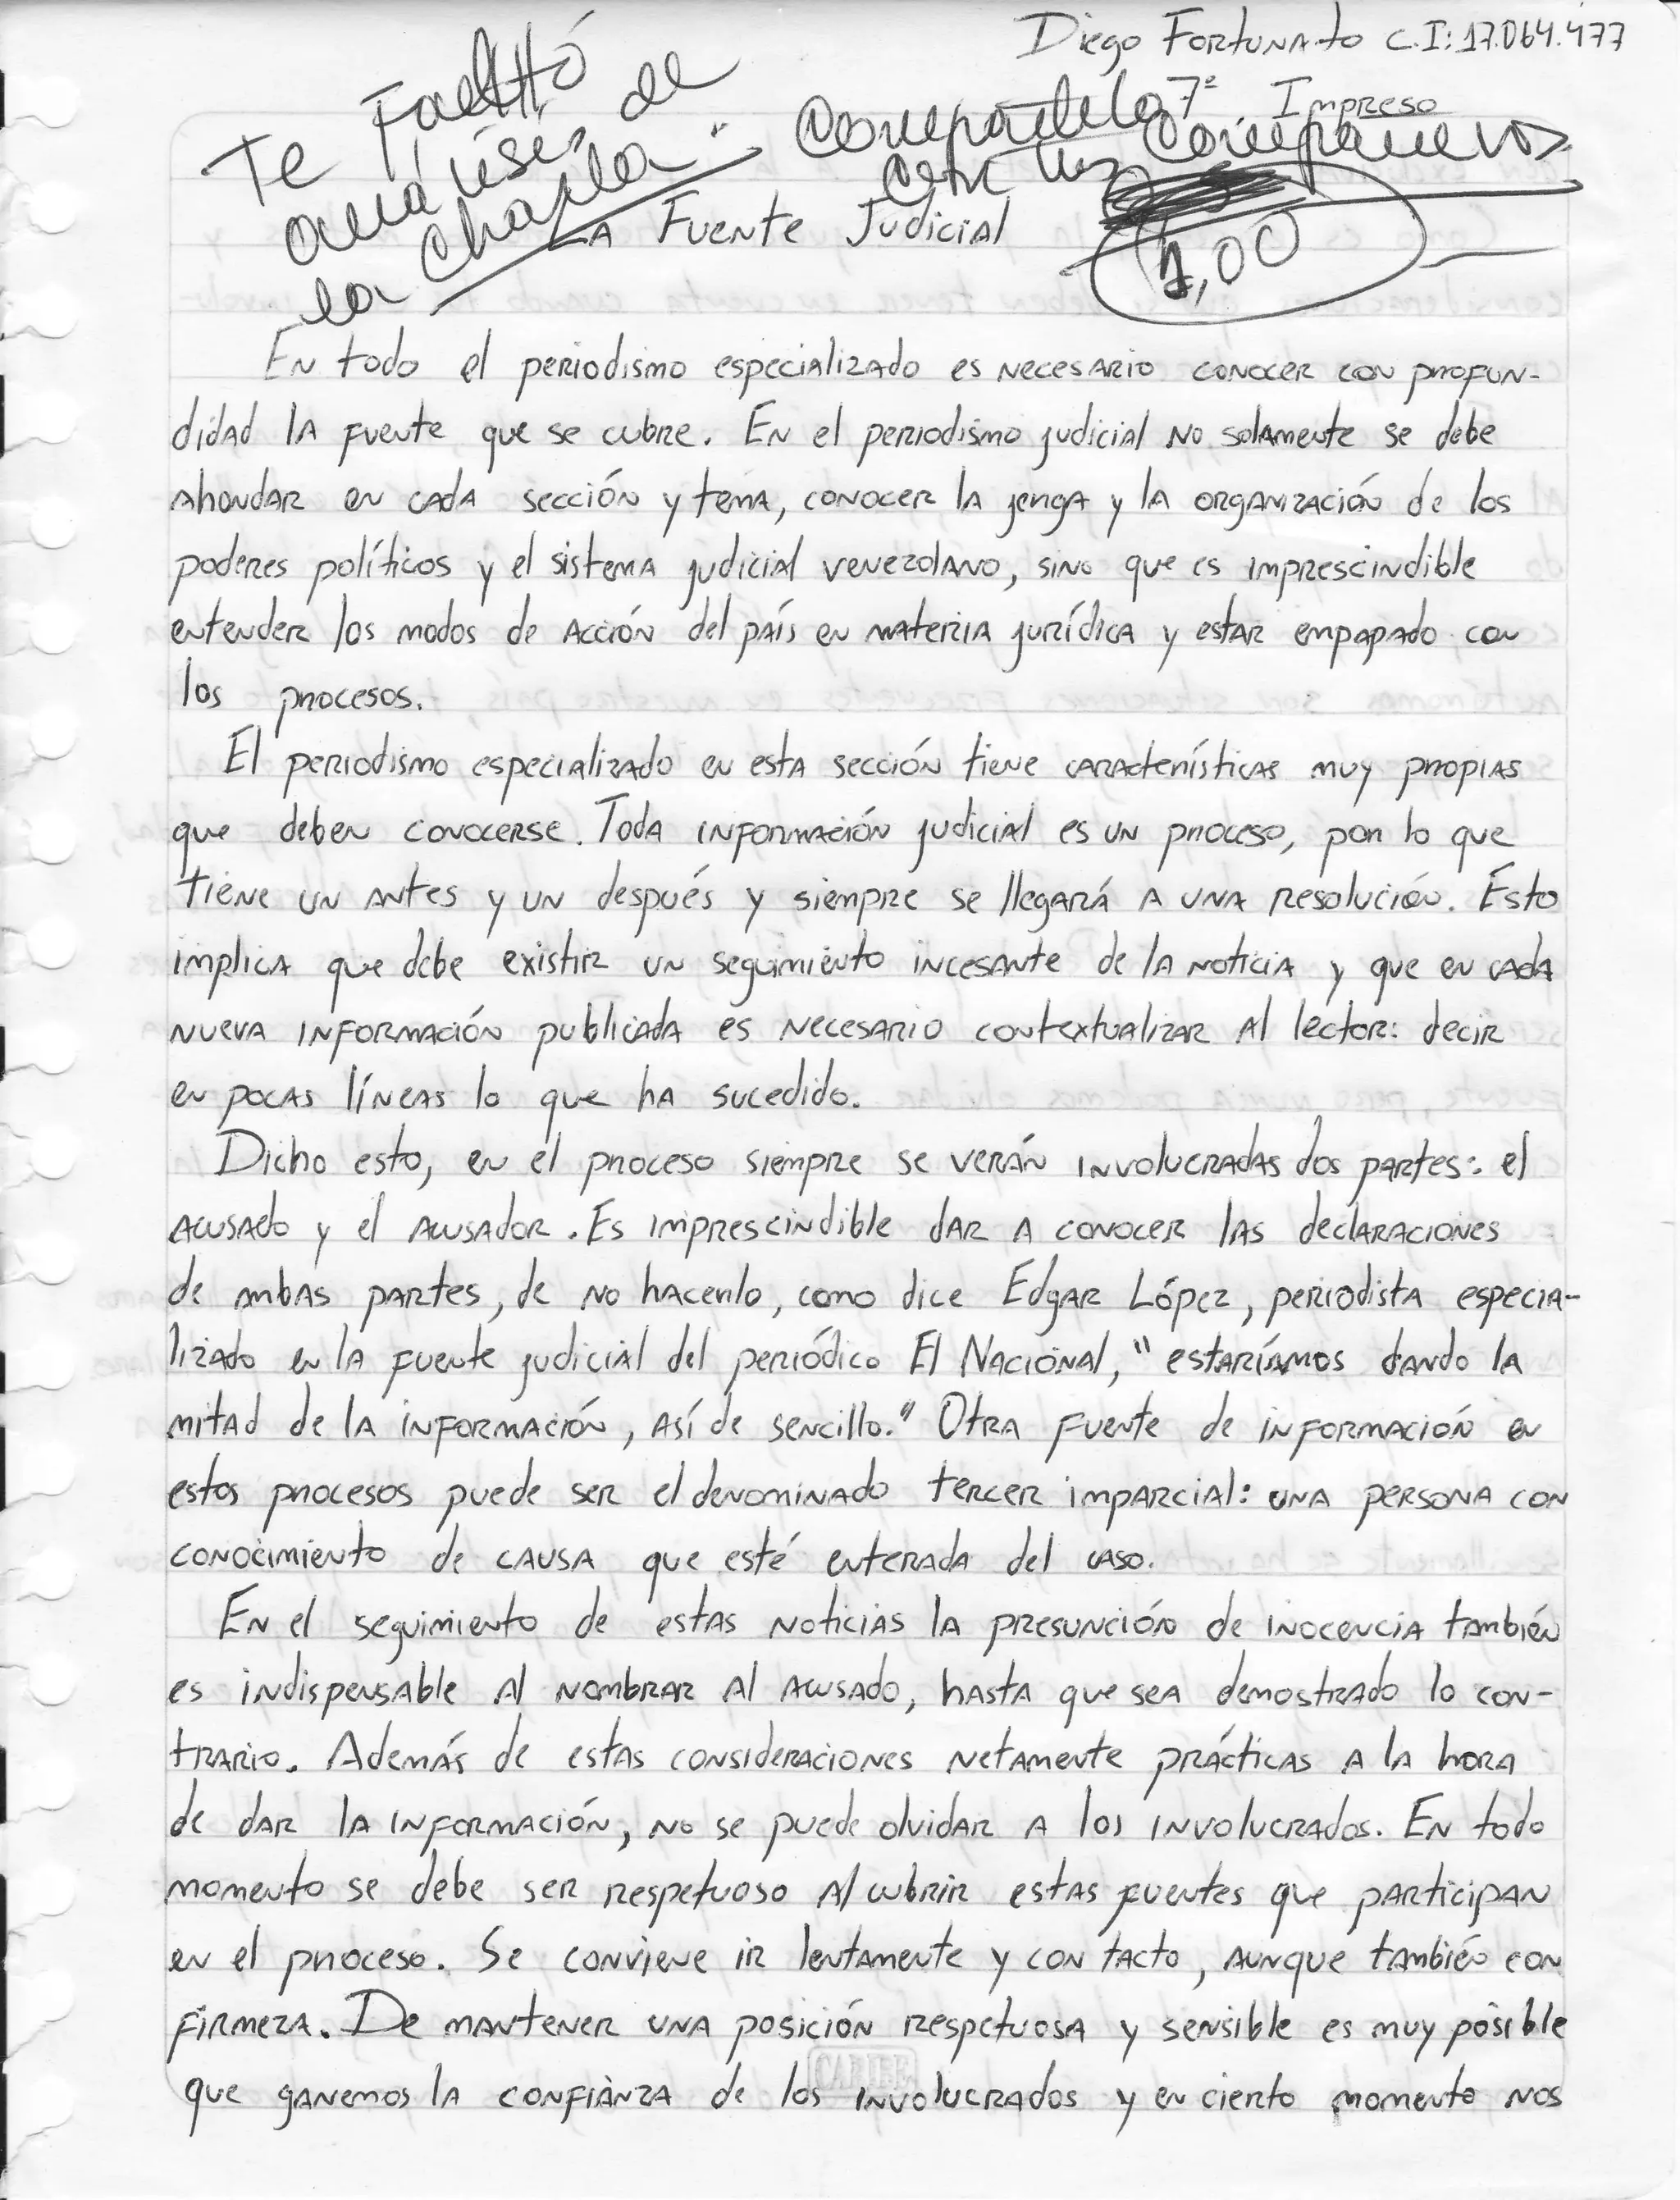 Diego Fortunato C.I: 17.064.477
7º Impreso
Te Faltó
análisis de
la charla.
Compártelo
con tus Compañeros
1,00
La Fuente Judicial
En todo el periodismo especializado es necesario conocer con profun-
didad la fuente que se cubre. En el periodismo judicial no solamente se debe
ahondar en cada sección y tema, conocer la jenga y la organización de los
poderes políticos y el sistema judicial venezolano, sino que es imprescindible
entender los modos de acción del país en materia jurídica y estar empapado con
los procesos.
El periodismo especializado en esta sección tiene características muy propias
que deben conocerse. Toda información judicial es un proceso, por lo que
tiene un antes y un después y siempre se llegará a una resolución. Esto
implica que debe existir un seguimiento incesante de la noticia y que en cada
nueva información publicada es necesario contextualizar al lector: decir
en pocas líneas lo que ha sucedido.
Dicho esto, en el proceso siempre se verán involucradas dos partes: el
acusado y el acusador. Es imprescindible dar a conocer las declaraciones
de ambas partes, de no hacerlo, como dice Edgar López, periodista especia-
lizado en la fuente judicial del periódico El Nacional, "estaríamos dando la
mitad de la información, así de sencillo." Otra fuente de información en
estos procesos puede ser el denominado tercer imparcial: una persona con
conocimiento de causa que esté enterada del caso.
En el seguimiento de estas noticias la presunción de inocencia también
es indispensable al nombrar al acusado, hasta que sea demostrado lo con-
trario. Además de estas consideraciones netamente prácticas a la hora
de dar la información, no se puede olvidar a los involucrados. En todo
momento se debe ser respetuoso al cubrir estas fuentes que participan
en el proceso. Se conviene ir lentamente y con tacto, aunque también con
firmeza. De mantener una posición respetuosa y sensible es muy posible
que ganemos la confianza de los involucrados y en cierto momento nos
CARIBE